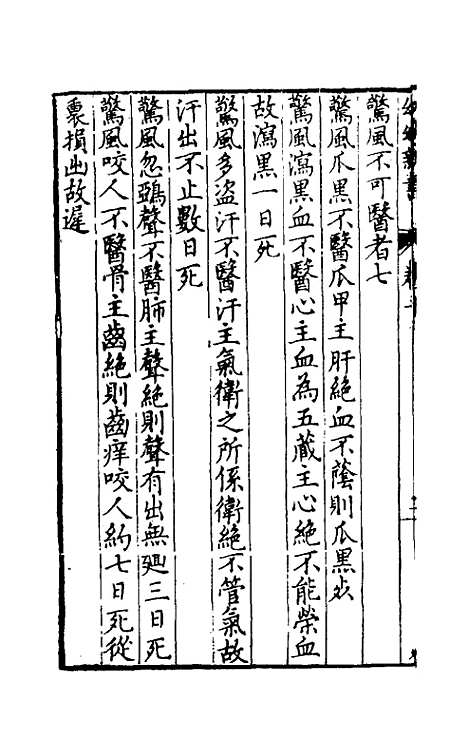 驚風不可醫者七
驚風爪黑不醫爪甲主肝絕血不蔭則爪黑必
驚風瀉黑血不醫心主血為五藏主心絕不能榮血
故瀉黑一日死
驚風多盗汗不醫汗主氣衛之所係衛絕不管氣故
汗出不止數日死
驚風忽鵶聲不醫肺主聲絕則聲有出無廻三日死
驚風咬人不醫骨主齒絕則齒痒咬人約七日死從
裏損出故遲